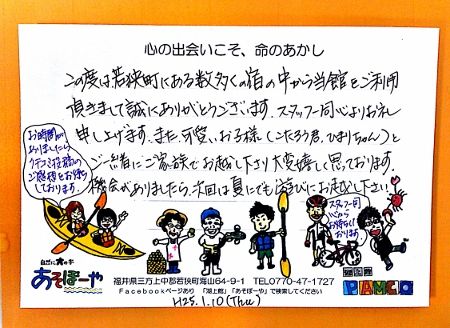 心の出会いこそ、命のあかし
この度は若狭町にある数多くの宿の中から当館をご利用
頂きまして誠にありがとうございます。スタッフ一同心よりお礼
申し上げます。また可愛いお子様（こたろう君、ひまりちゃん）と
ご一緒にご家族でお越し下さり大変嬉しく思っております。
機会がありましたら、次回は夏にでも遊びにお越し下さい！
お時間が
ありましたら
クチコミ投稿の
ご感想をお待ち
しております
スタッフ一同
心から
お待ちして
おります
自然に
あそぼーや
湖上館
PAMCO
福井県三方上中郡若狭町海山64-9-1 TEL0770-47-1727
Facebookページあり 「湖上館」「あそぼーや」で検索してください
H25.1.10(Thu)